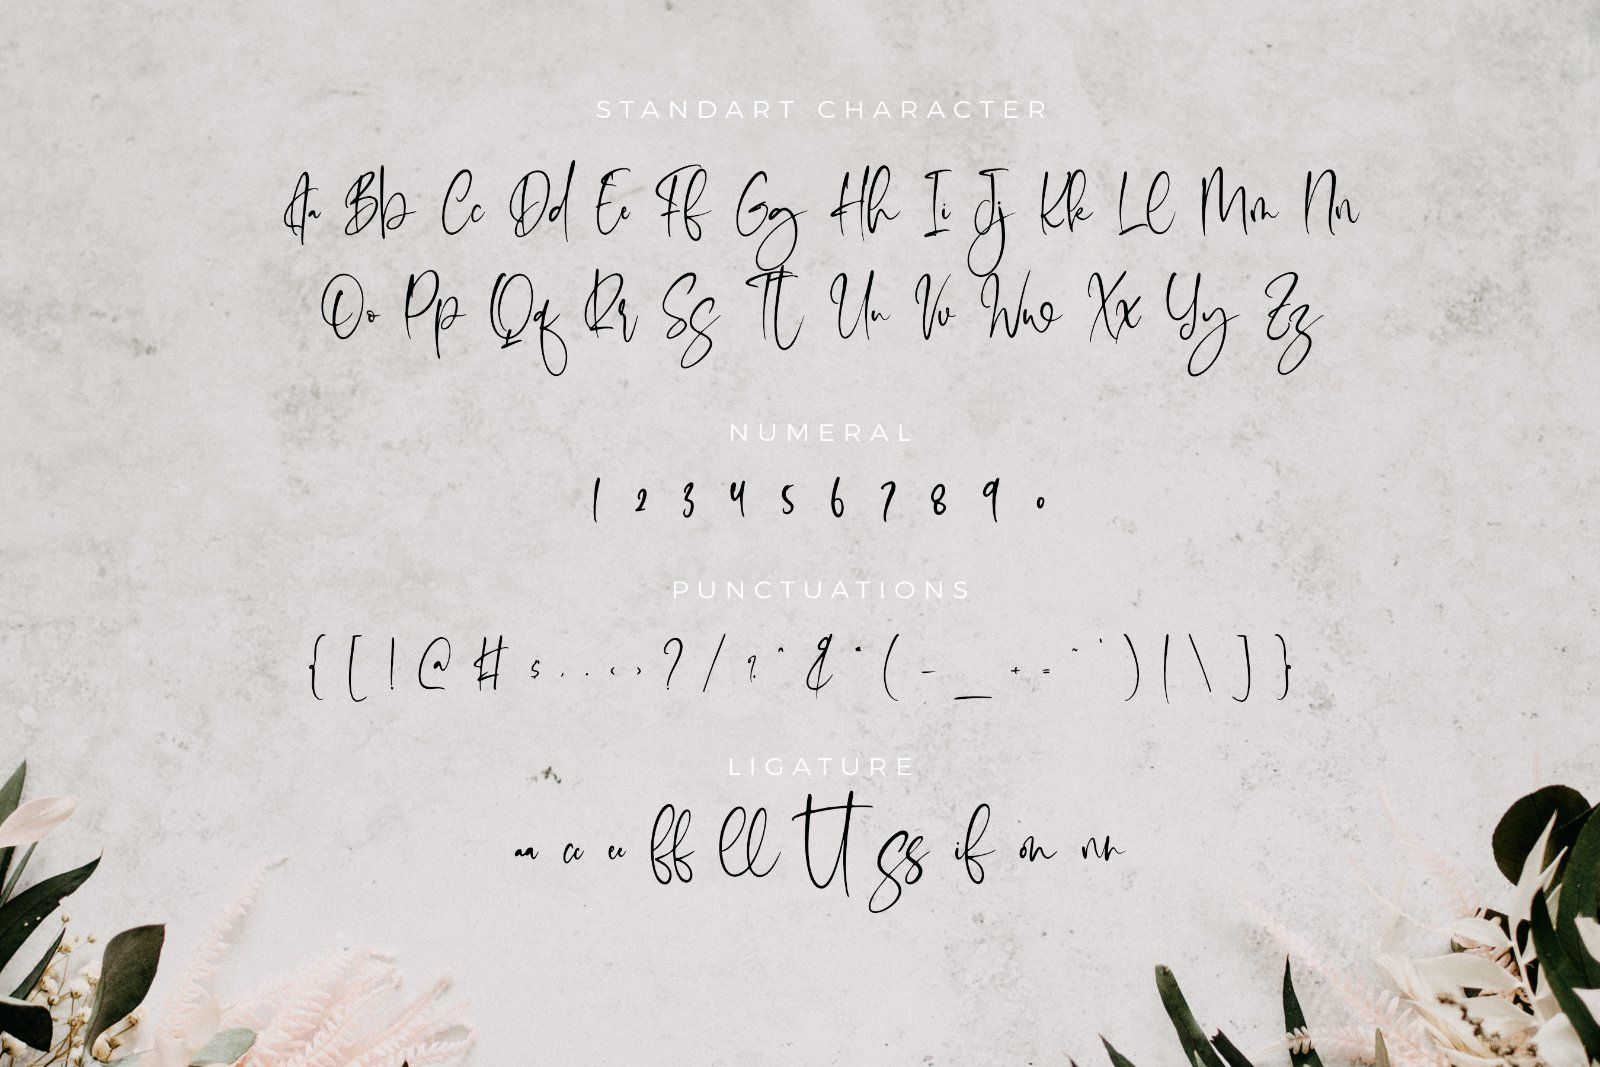 STANDART CHARACTER
Aa Bb Cc Dd Ee Ff Gg Hh Ii Jj Kk Ll Mm Nn
Oo Pp Qq Rr Ss Tt Uu Vv Ww Xx Yy Zz
NUMERAL
1 2 3 4 5 6 7 8 9 0
PUNCTUATIONS
{ [ ! @ # $ , . < > ? / & ( - _ + = ) | \ ] }
LIGATURE
aa cc ee ff ll tt ss if on nn